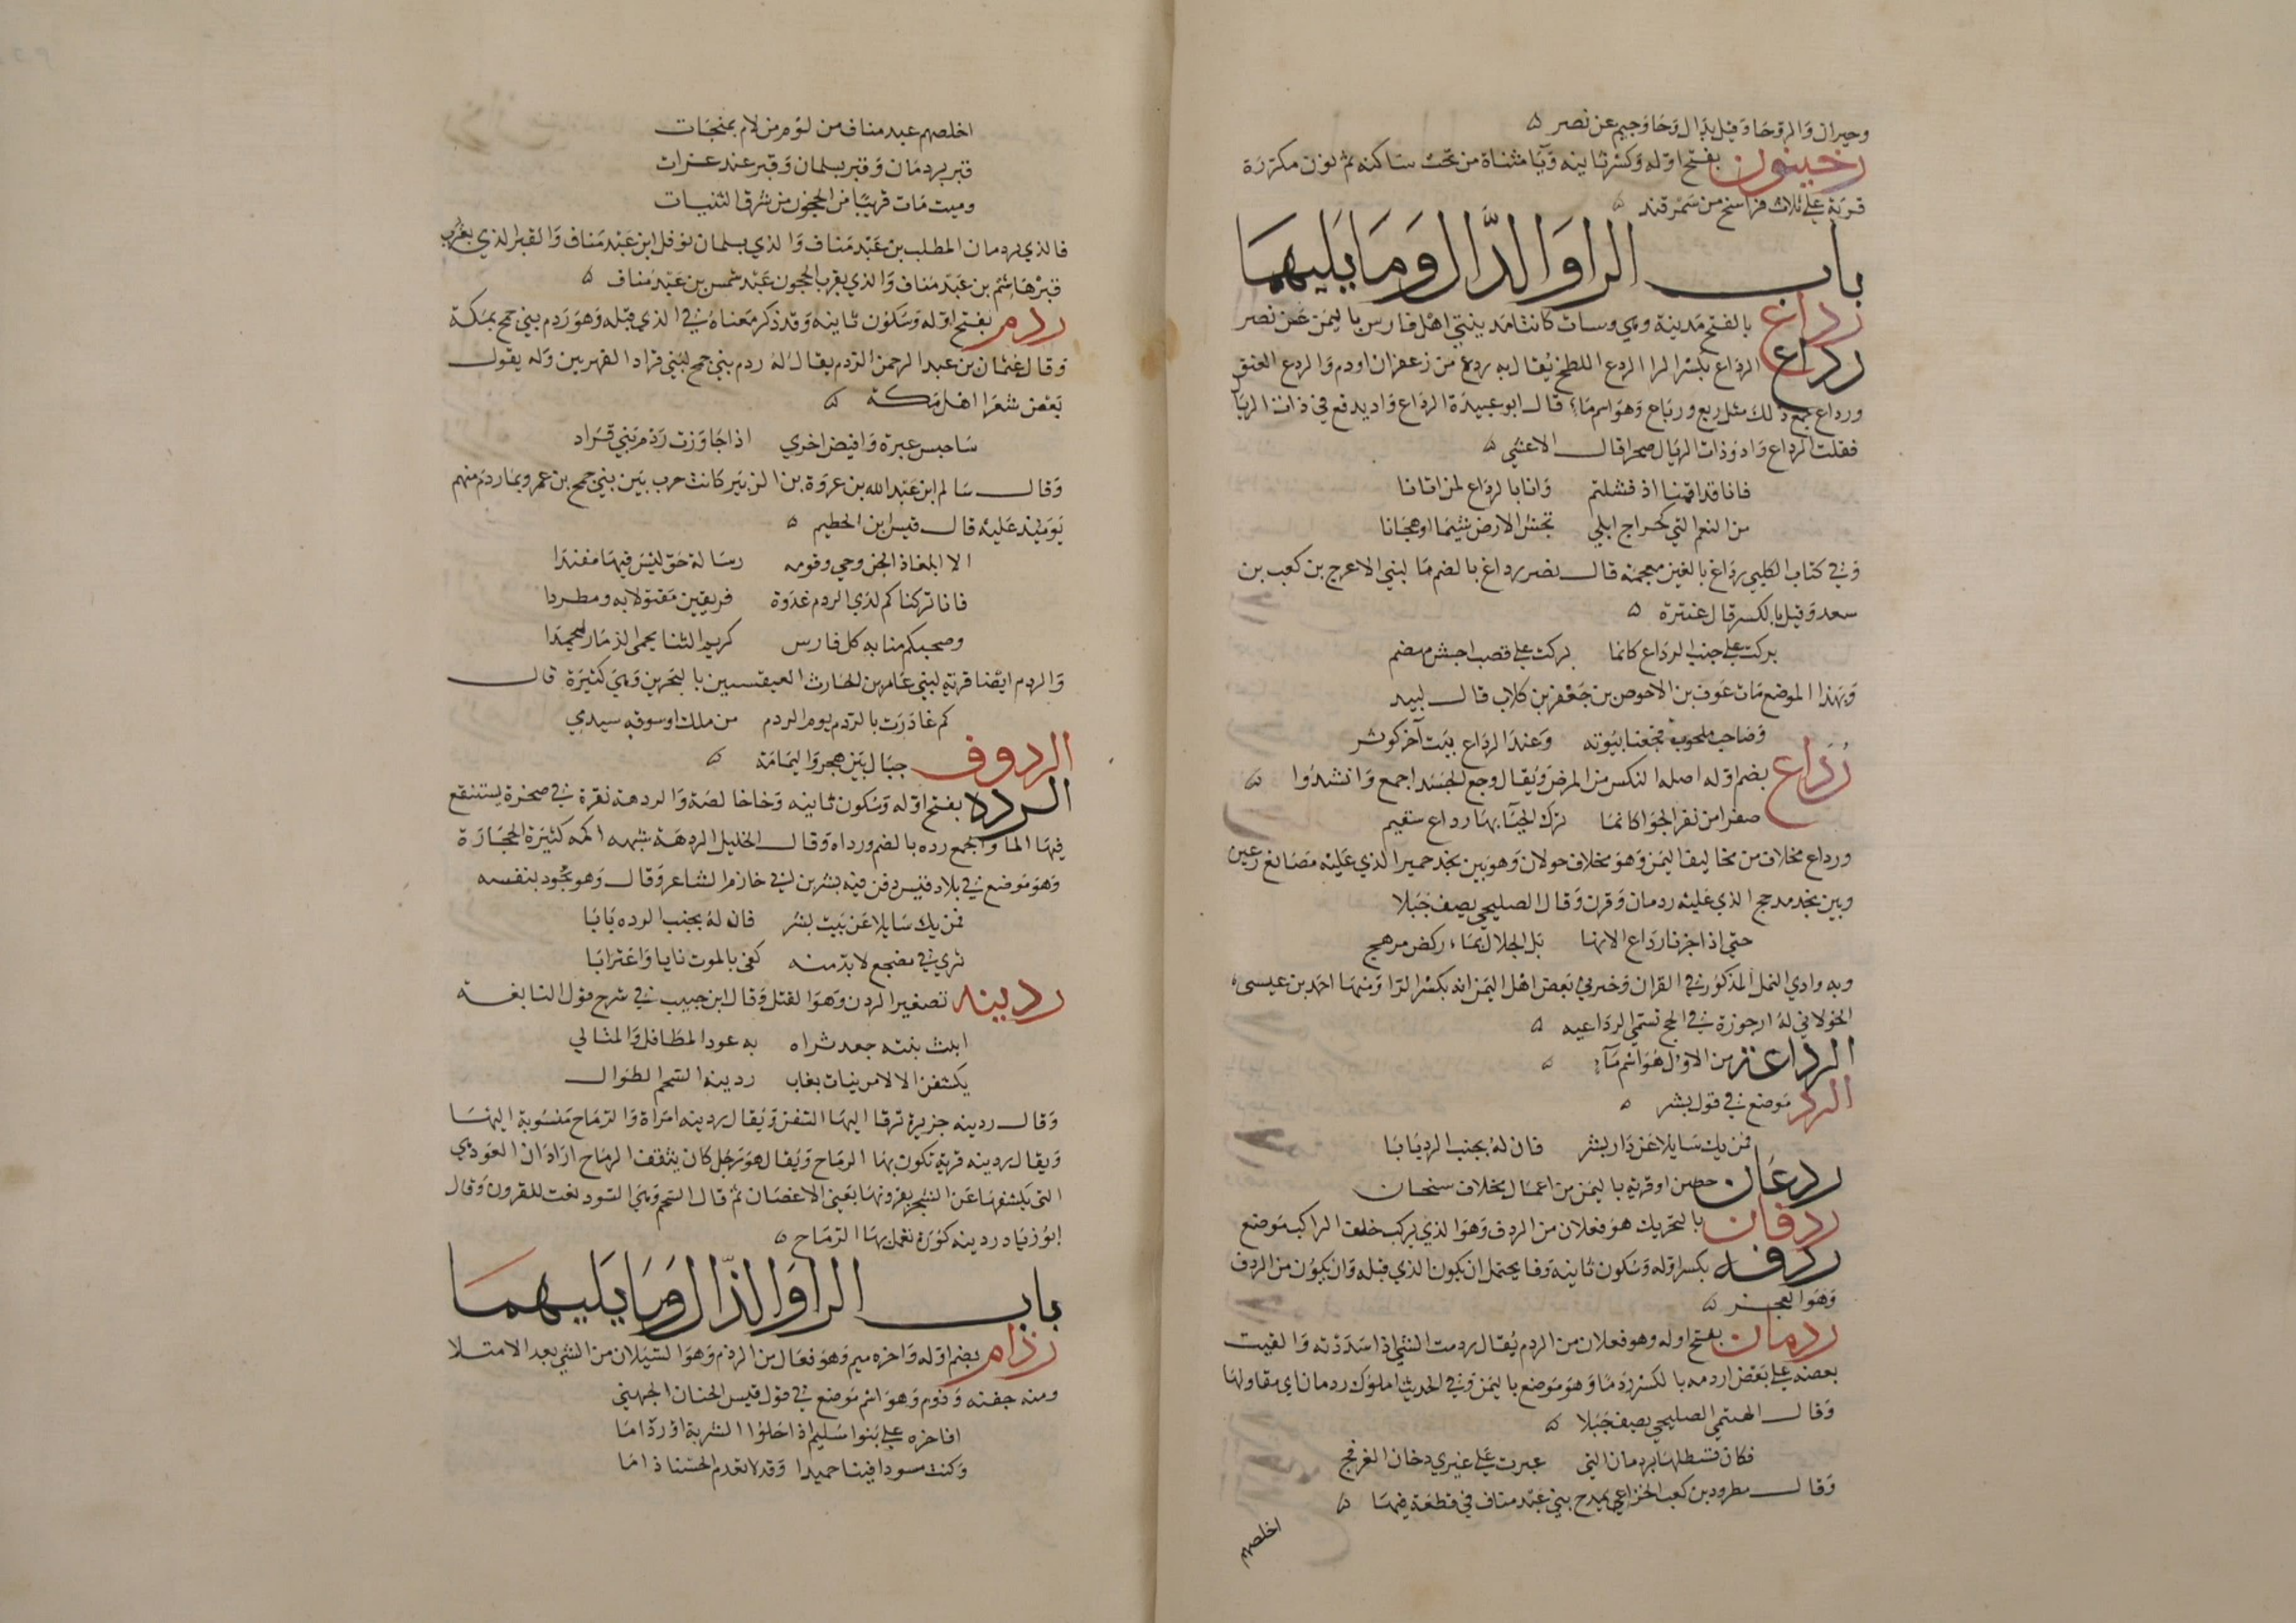 وحيران والروحا وقيل بدال وحا وجيم عن نصر ٥
رخينون بفتح اوله وكسر ثانيه ويا مثناة من تحت ساكنه ثم نون مكررة
قرية على ثلاث فراسخ من سمرقند ٥
باب الرا والدال وما يليهما
رداع بالفتح مدينة وهي وسات كانتا مدينتي اهل فارس باليمن عن نصر
رداع الرداع بكسر الرا الردع اللطخ يقال به ردع من زعفران او دم والردع العنق
ورداع جمع ذلك مثل ربع ورباع وهو اسم ماء قال ابو عبيدة الرداع واد يدفع في ذات الريال
فقلت الرداع واد وذات الريال صحرا قال الاعشى ٥
فانا قد اقمنا اذ فشلتم وانا بالرداع لمن اتانا
من النعم التي كحراج ابلي تحش الارض شيما او هجانا
وفي كتاب الكلبي رداغ بالغين معجمة قال نصر رداغ بالضم ما لبني الاعرج بن كعب بن
سعد وقيل بالكسر قال عنترة ٥
بركت على جنب الرداع كانما بركت على قصب اجش مهضم
وبهذا الموضع مات عوف بن الاحوص بن جعفر بن كلاب قال لبيد
وصاحب ملحوب فجعنا بيوته وعند الرداع بيت آخر كوثر
رداع بضم اوله اصله النكس من المرض ويقال وجع الجسد اجمع وانشدوا ٥
صفرا من نقر الجوا كانما ترك الحيا بها رداع سقيم
ورداع مخلاف من مخاليف اليمن وهو مخلاف حولان وهو بين نجد حمير الذي عليه مصانع رعين
وبين نجد مدحج الذي عليه ردمان وقرن وقال الصليحي يصف جبلا
حتى اذا جزنا رداع الانها بل الجلال بماء ركض مرهج
وبه وادي النمل المذكور في القران وخبرني بعض اهل اليمن انه بكسر الرا ومنها احمد بن عيسى
الخولاني له ارجوزة في الحج تسمى الرداعيه ٥
الرداعة من الاول هو اسم ماء ٥
الرد موضع في قول بشر ٥
فمن يك سايلا عن دار بشر فان له بجنب الرد بابا
ردعان حصن او قرية باليمن من اعمال مخلاف سنحان
ردفان بالتحريك هو فعلان من الردف وهو الذي يركب خلف الراكب موضع
ردفه بكسر اوله وسكون ثانيه وفا يحتمل ان يكون الذي قبله وان يكون من الردف
وهو العجز ٥
ردمان بفتح اوله وهو فعلان من الردم يقال ردمت الشي اذا سددته والقيت
بعضه على بعض اردمه بالكسر ردما وهو موضع باليمن وفي الحديث املوك ردمان اي مقاولها
وقال الهيتمي الصليحي يصف جبلا ٥
فكان قسطلها بردمان التي عبرت على غيري دخان العرفج
وقال مطرود بن كعب الخزاعي يمدح بني عبد مناف في قطعة فيها ٥
اخلصهم
اخلصهم عبد مناف من لوم من لام بمنجات
قبر بردمان وقبر بسلمان وقبر عند غزات
وميت مات قريبا من الحجون من شرق الثنيات
فالذي بردمان المطلب بن عبد مناف والذي بسلمان نوفل ابن عبد مناف والقبر الذي بغرب
قبر هاشم بن عبد مناف والذي بقرب الحجون عبد شمس بن عبد مناف ٥
ردم بفتح اوله وسكون ثانيه وقد ذكر معناه في الذي قبله وهو ردم بني جمح بمكة
وقال عثمان بن عبد الرحمن الردم يقال له ردم بني جمح لبني قراد الفهريين وله يقول
بعض شعرا اهل مكة ٥
ساحبس عبرة وافيض اخري اذا جاوزت ردم بني قراد
وقال سالم ابن عبد الله بن عروة بن الزبير كانت حرب بين بني جمح بن عمرو بما ردم منهم
يوميذ عليه قال قيس ابن الحطيم ٥
الا ابلغا ذا الخزرجي وقومه رسالة حق ليس فيها مفندا
فانا تركناكم لدي الردم غدوة فريقين مقتولا به ومطردا
وصحبكم منا به كل فارس كريم الثنا يحمي الذمار ليحمدا
والردم ايضا قرية لبني عامر بن الحارث العبقسيين بالبحرين وهي كثيرة قال
كم غادرت بالردم يوم الردم من ملك او سوقه سيدمي
الردوف جبال بين هجر واليمامة ٥
الرده بفتح اوله وسكون ثانيه وخا خالصة والردهة نقرة في صخرة يستنقع
فيها الما والجمع رده بالضم ورداه وقال الخليل الردهة شبه اكمة كثيرة الحجارة
وهو موضع في بلاد قيس دفن فيه بشر بن ابي خازم الشاعر وقال وهو يجود بنفسه
فمن يك سايلا عن بيت بشر فان له بجنب الرده بابا
ثوي في مضجع لا بد منه كفى بالموت نايا واغترابا
ردينه تصغير الردن وهو القتل وقال ابن حبيب في شرح قول النابغة
ابلث بنته جعد ثراه به عود المطافل والمتالي
يكشفن الالا مرينات بغاب ردينه السحم الطوال
وقال ردينه جزيرة ترقا اليها السفن ويقال ردينه امراة والرماح منسوبة اليها
ويقال ردينه قرية تكون بها الرماح ويقال هو رجل كان يثقف الرماح اراد ان العوذي
التي يكشفها عن الشجر بقرونها يعني الاغصان ثم قال السحم وهي السود نعت للقرون وقال
ابو زياد ردينه كورة تعمل بها الرماح ٥
باب الرا والذال وما يليهما
رذام بضم اوله واخره ميم وهو فعال من الرذم وهو السيلان من الشي بعد الامتلا
ومنه جفنه رذوم وهو اسم موضع في قول قيس الحنان الجهني
افاخره على بنوا سليم اذا حلوا الشربة او رذاما
وكنت مسودا فينا حميدا وقد لا تعدم الحسنا ذاما